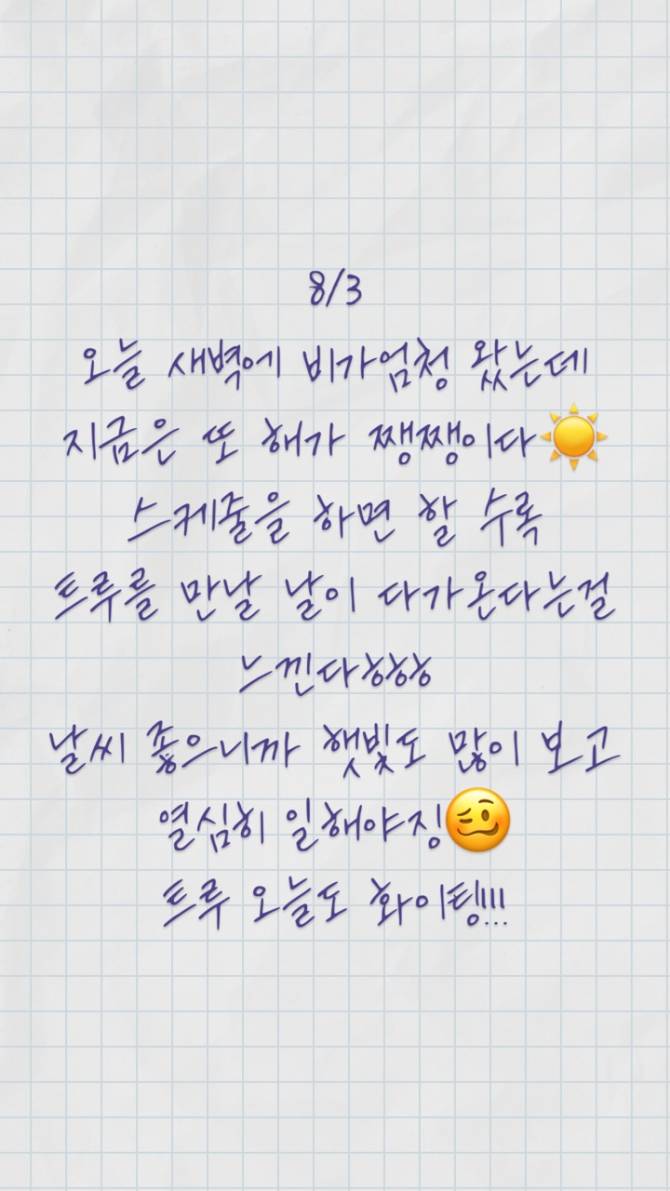 8/3
오늘 새벽에 비가엄청 왔는데
지금은 또 해가 쨍쨍이다☀️
스케줄을 하면 할 수록
트루를 만날 날이 다가온다는걸
느낀다ㅎㅎㅎ
날씨 좋으니까 햇빛도 많이 보고
열심히 일해야징🥴
트루 오늘도 화이팅!!!